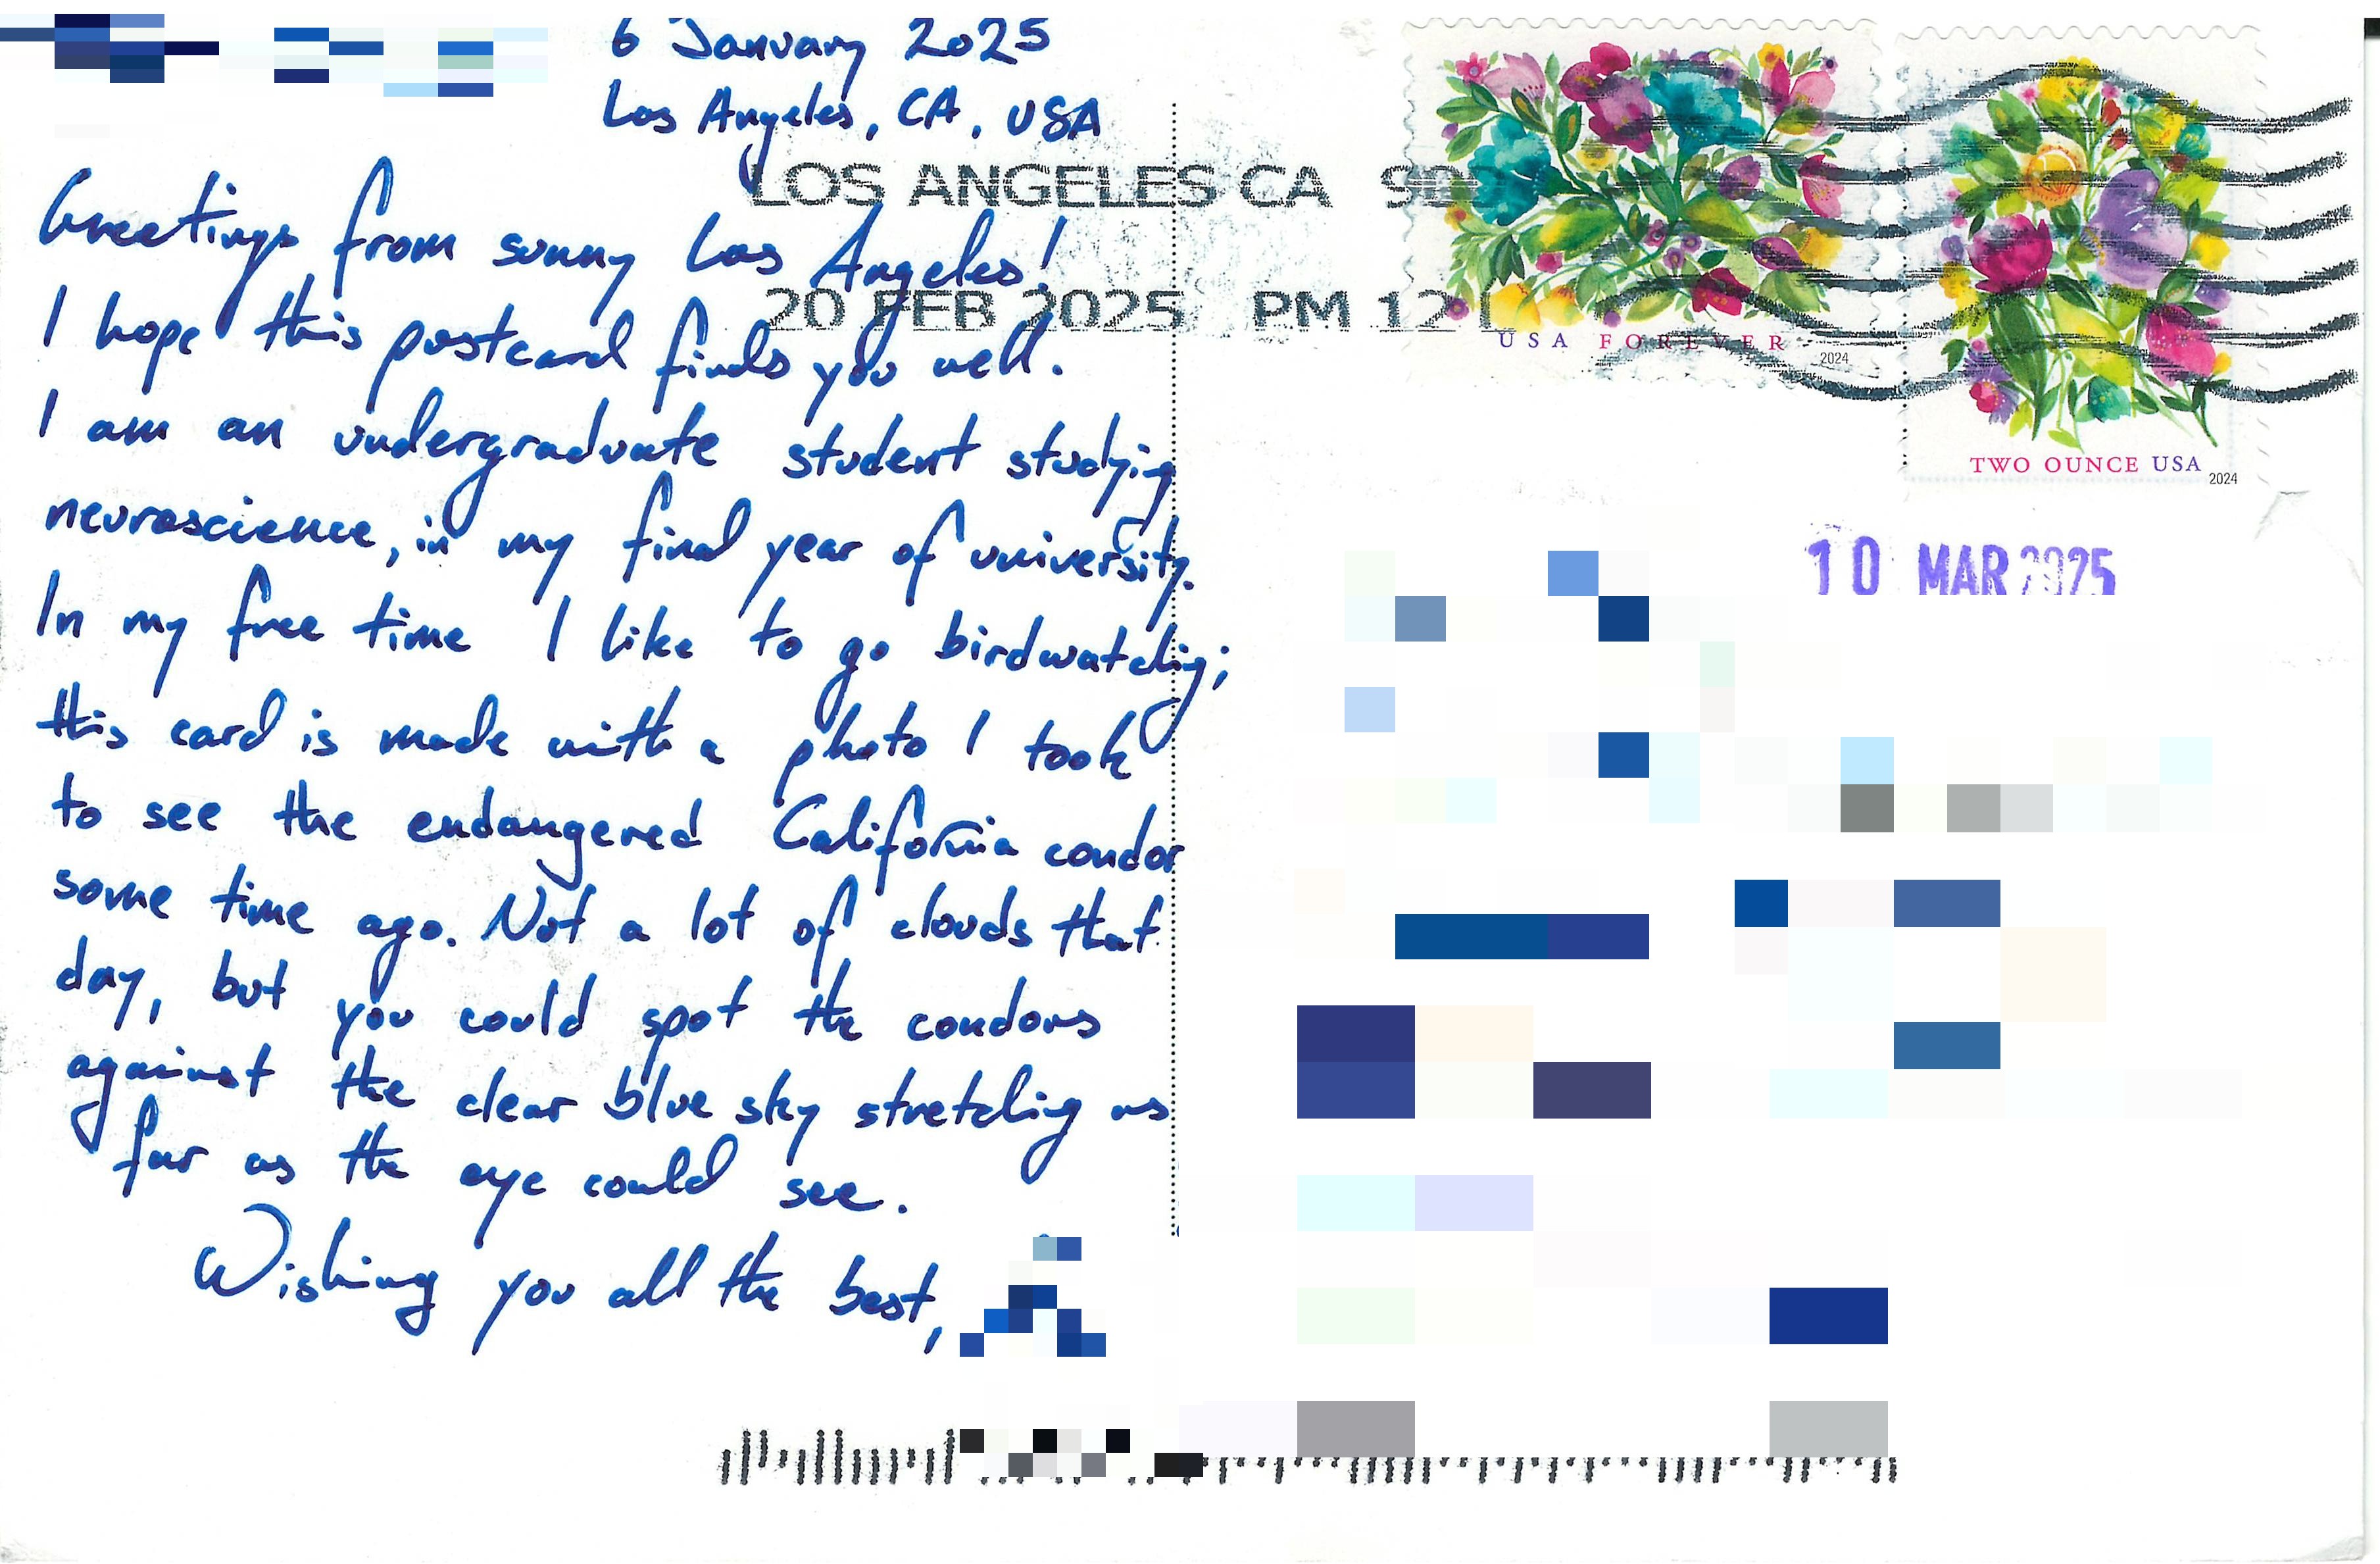 6 January 2025
Los Angeles, CA, USA
LOS ANGELES CA
20 FEB 2025 PM 12
USA FOREVER
2024
TWO OUNCE USA
2024
10 MAR 2025
Greetings from sunny Los Angeles!
I hope this postcard finds you well.
I am an undergraduate student studying
neuroscience, in my final year of university.
In my free time I like to go birdwatching;
this card is made with a photo I took
to see the endangered California condor
some time ago. Not a lot of clouds that
day, but you could spot the condors
against the clear blue sky stretching as
far as the eye could see.
Wishing you all the best,